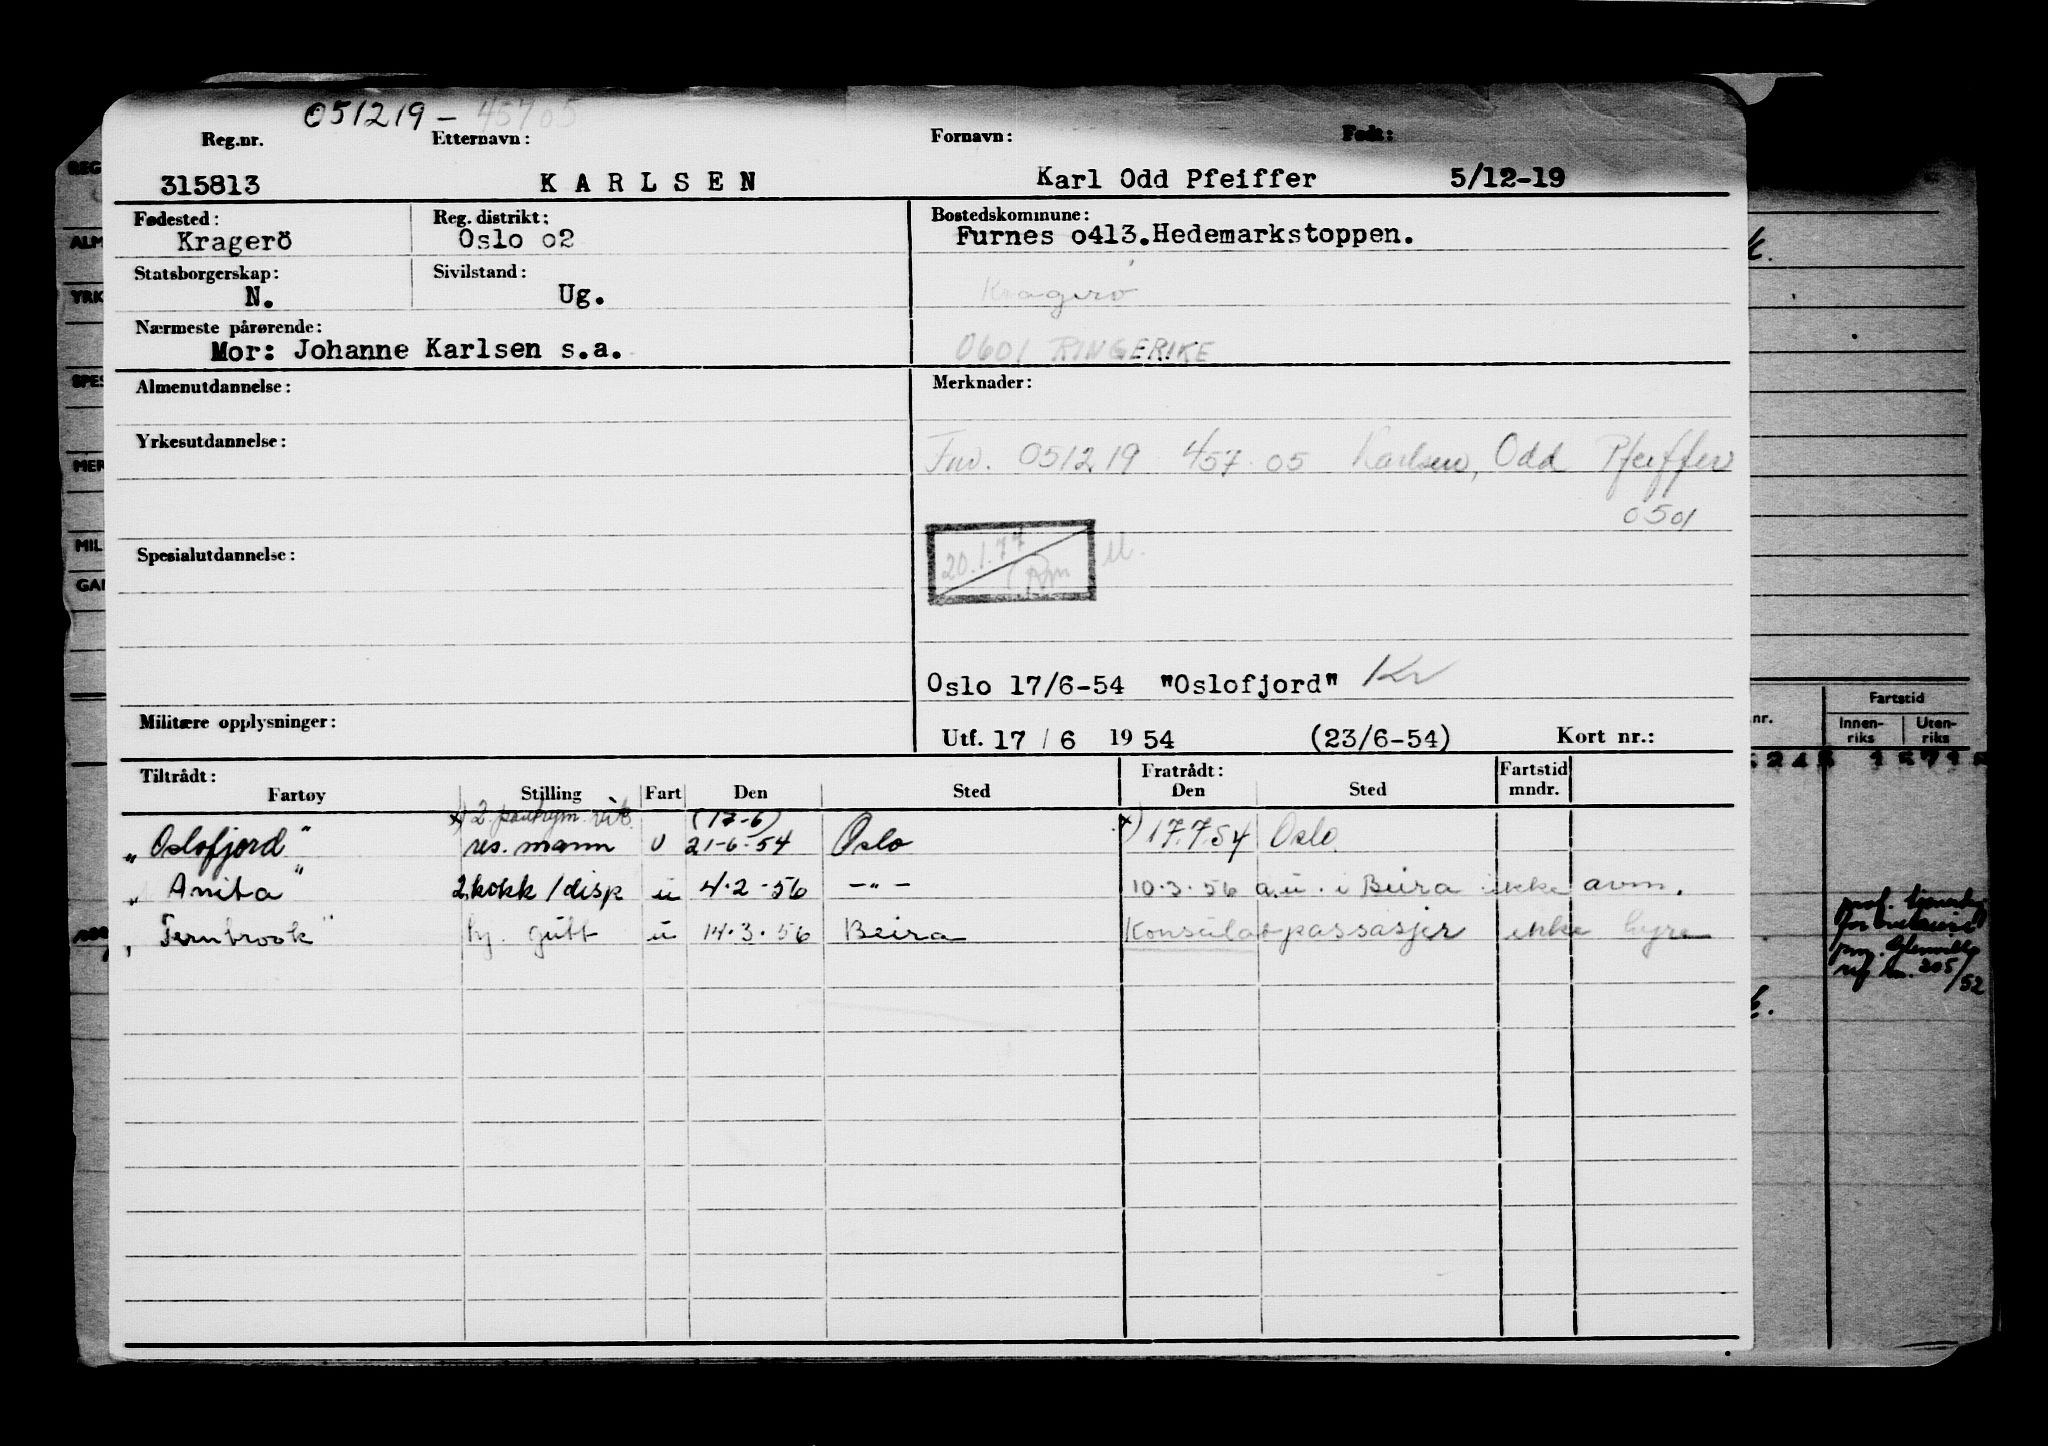 051219 - 45705
Reg.nr. Etternavn: Fornavn: Født:
315813 KARLSEN Karl Odd Pfeiffer 5/12-19
Fødested: Reg. distrikt: Bostedskommune:
Kragerö Oslo o2 Furnes o413.Hedemarkstoppen.
Statsborgerskap: Sivilstand:
N. Ug. Kragerø
Nærmeste pårørende:
Mor: Johanne Karlsen s.a. 0601 RINGERIKE
Almenutdannelse: Merknader:
Yrkesutdannelse:
Fnr. 051219 457 05 Karlsen, Odd Pfeiffer
0501
Spesialutdannelse:
20.1.77
Oslo 17/6-54 "Oslofjord" Kr
Militære opplysninger:
Utf. 17 / 6 19 54 (23/6-54) Kort nr.:
Tiltrådt: Fratrådt: Fartstid
Fartøy Stilling Fart Den Sted Den Sted mndr.
x) 2. (17-6)
"Oslofjord" res. mann U 21-6-54 Oslo x) 17.7.54 Oslo
"Anita" 2.kokk/disp u 4.2.56 -"- 10.3.56 a.u. i Beira ikke avm.
"Fernbrook" hj. gutt u 14.3.56 Beira Konsulatpassasjer ikke hyre
REG
ALM
YRK
SPES
MER
MIL
GAR
k.
nr.
Fartstid
Innen-riks Uten-riks
205/52